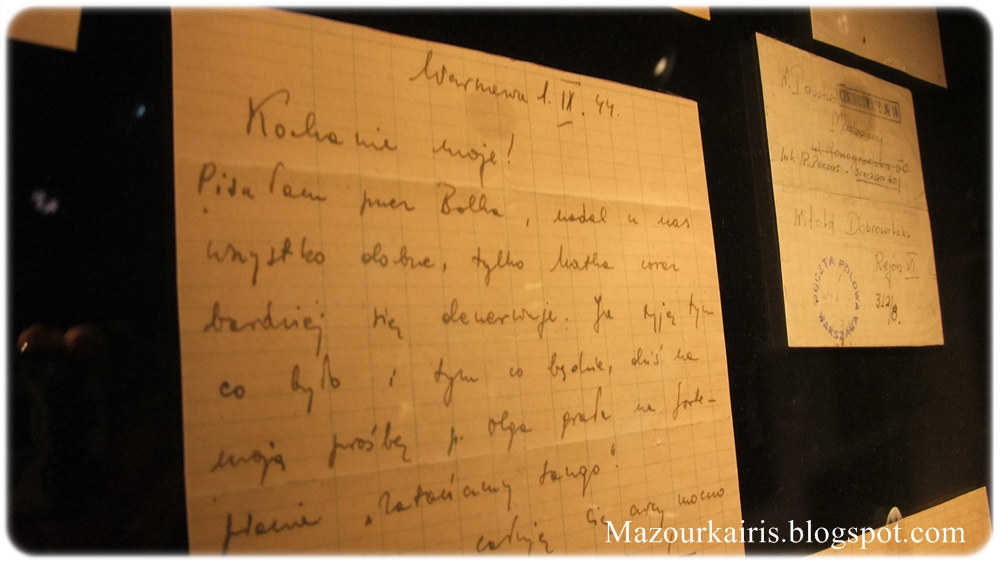 Warszawa 1. IX. 44.
Kochanie moje!
Pisałam przez Bolka, nadal u nas
wszystko dobrze, tylko Matka coraz
bardziej się denerwuje. Ja żyję tym
co było i tym co będzie, dziś na
moją prośbę p. Olga grała na forte-
pianie „Zatańczmy tango".
całuję Cię mocno
Nowogrodzka 60
Witold Dobrowolski
Rejon VI
312/8.
POCZTA POLOWA
WARSZAWA
Mazourkairis.blogspot.com